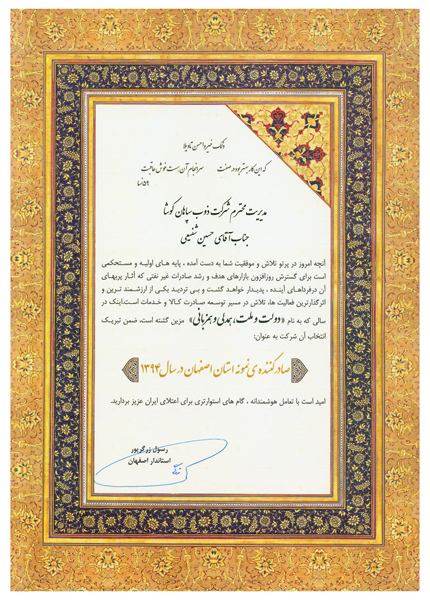 ذلک خیر و احسن تاویلا
که این کار بهتر بود در صفت     سرانجام آن هست خوش عاقبت
۵۹ نسا
مدیریت محترم شرکت ذوب سپاهان کوشا
جناب آقای حسین شفیعی
آنچه امروز در پرتو تلاش و موفقیت شما به دست آمده ، پایه های اولیه و مستحکمی
است برای گسترش روزافزون بازارهای هدف و رشد صادرات غیر نفتی که آثار پربهای
آن درفرداهای آینده ، پدیدار خواهد گشت و بی تردید یکی از ارزشمند ترین و
اثرگذارترین فعالیت ها، تلاش در مسیر توسعه صادرت کالا و خدمات است.اینک در
سالی که به نام «دولت و ملت، همدلی و همزبانی» مزین گشته است، ضمن تبریک
انتخاب آن شرکت به عنوان:
صادر کننده ی نمونه استان اصفهان در سال ۱۳۹۴
امید است با تعامل هوشمندانه ، گام های استوارتری برای اعتلای ایران عزیز بردارید.
رسول زرگرپور
استاندار اصفهان